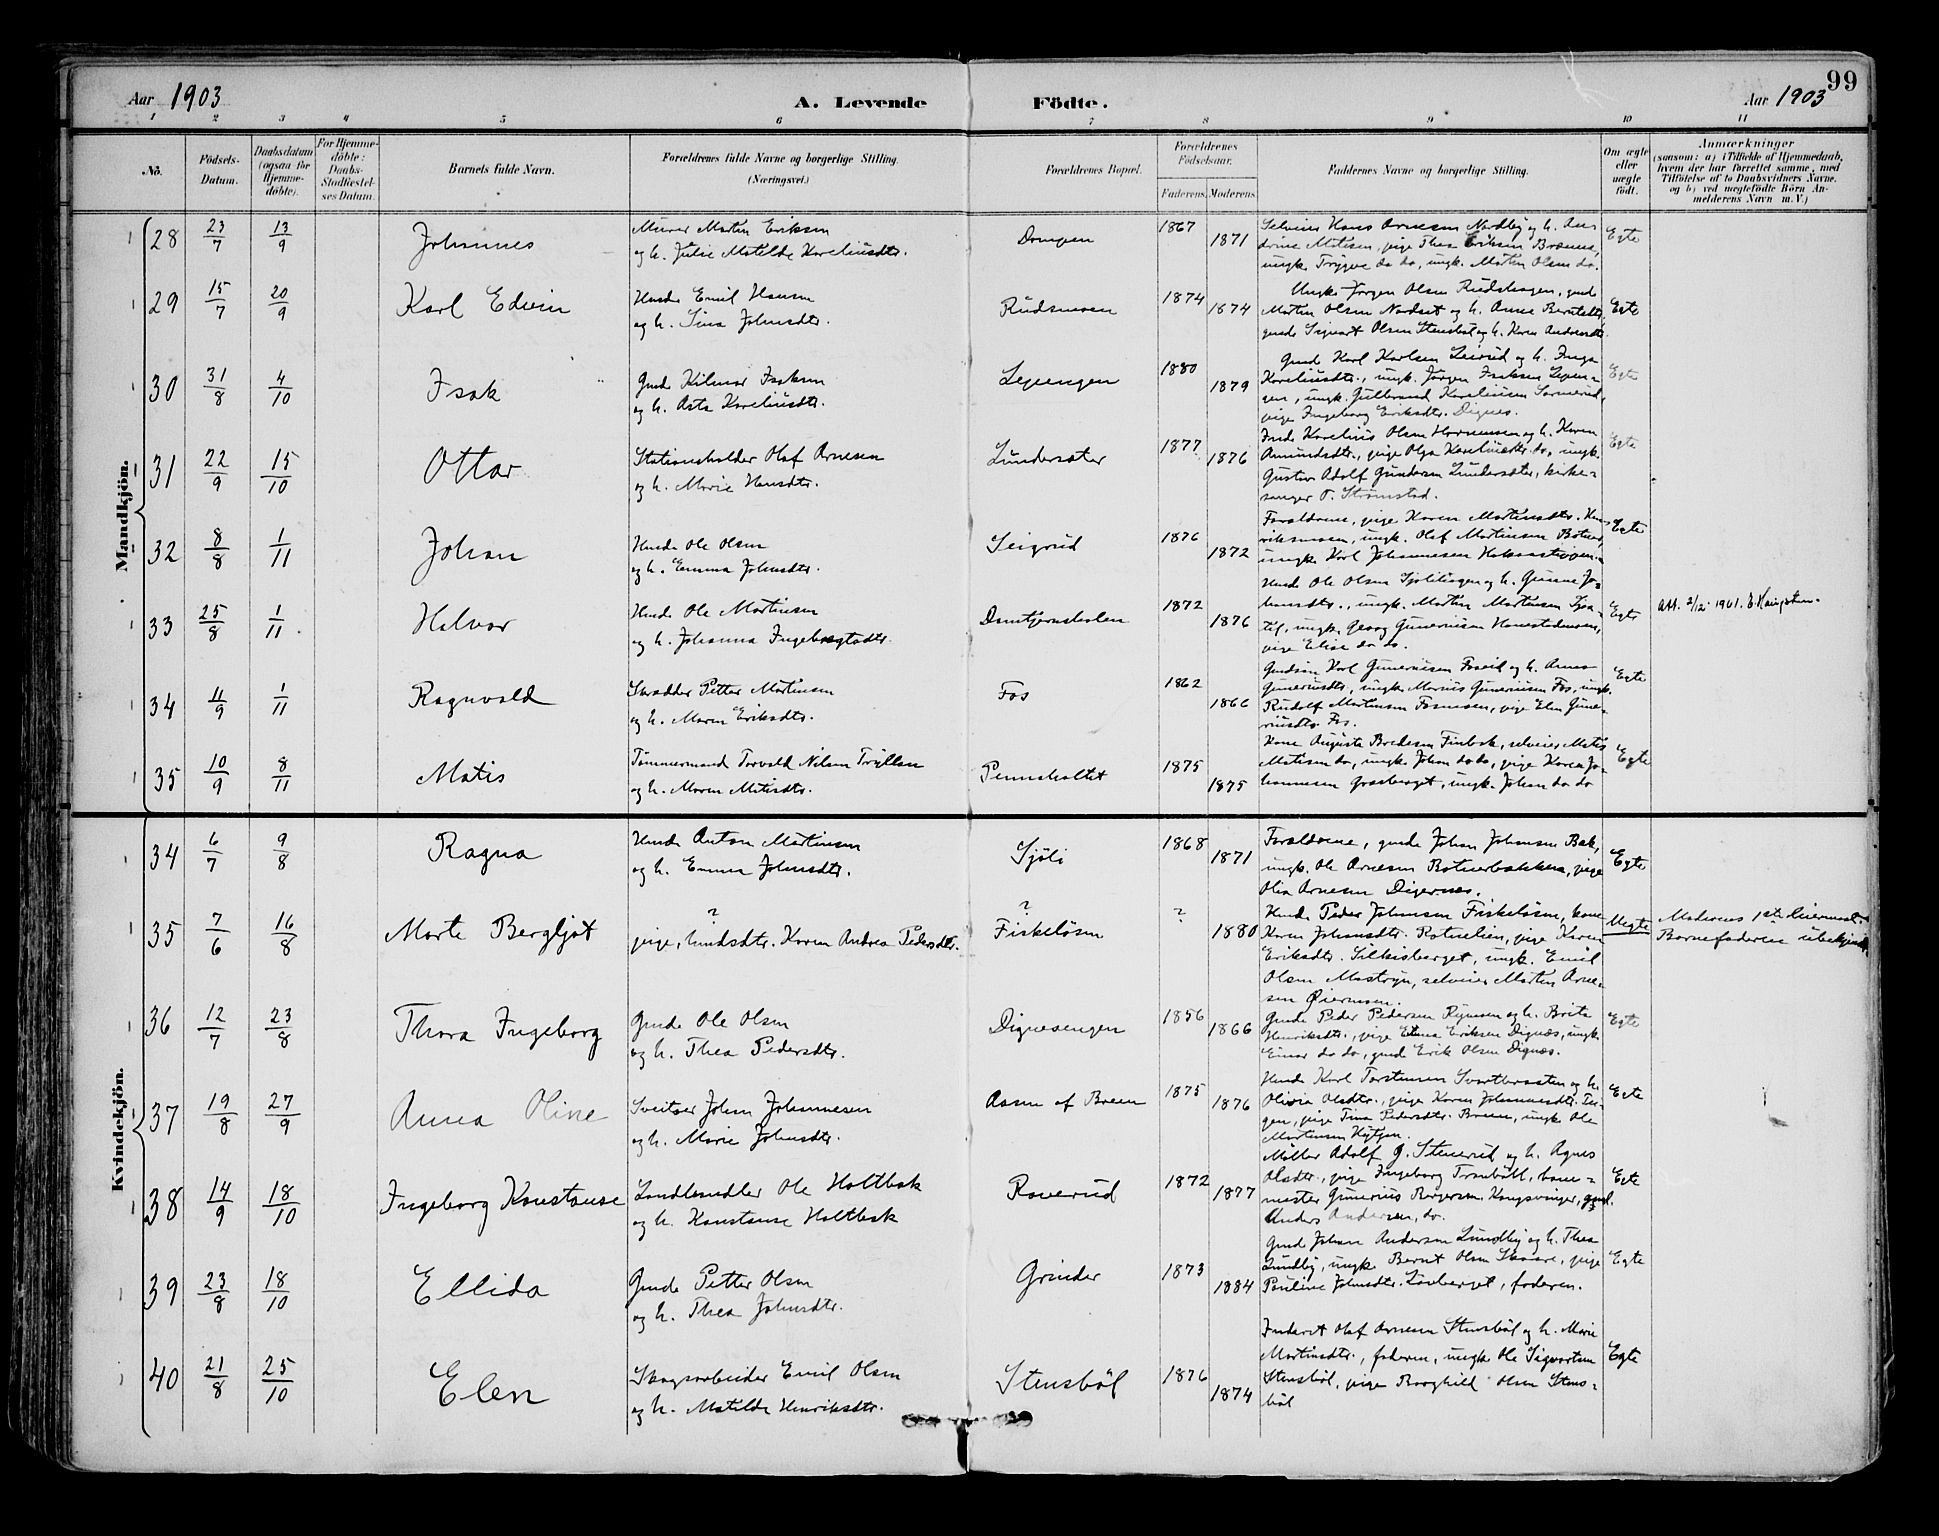 99
Aar 1903
A. Levende Födte.
Aar 1903
1 2 3 4 5 6 7 8 9 10 11
No.
Födsels-Datum.
Daabsdatum (ogsaa for Hjemme-döbte).
For Hjemme-döbte: Daabs-Stadfæstel-ses Datum.
Barnets fulde Navn.
Forældrenes fulde Navne og borgerlige Stilling.
(Næringsvei.)
Forældrenes Bopæl.
Forældrenes Födselsaar.
Faderens. Moderens.
Faddernes Navne og borgerlige Stilling.
Om ægte eller uægte födt.
Anmærkninger
(saasom: a) i Tilfælde af Hjemmedaab, hvem der har forrettet samme, med Tilföielse af to Daabsvidners Navne, og b) ved uægtefödte Börn Anmelderens Navn m. V.)
Mandkjön.
28 23/7 13/9 Johannes
Murer Martin Eriksen
og h. Julie Matilde Koreliusdtr.
1867 1871
Selveier Hans Arnesen Nordby og h. An-
drine Matisen, pige Thea Eriksen
ungk. Trygve do do, ungk. Martin Olsen do.
Egte
29 15/7 20/9 Karl Edvin
Husm. Emil Hansen
og h. Lina Johnsdtr.
Rudsmoen
1874 1874
Ungk. Jørgen Olsen Rudshagen, gmd.
Martin Olsen Nordset og h. Anne
gmd. Sigvart Olsen Stensbøl og h. Karen Andreasdtr.
Egte
30 31/8 4/10 Isak
Gmd. Hilmar Isaksen
og h. Asta Koreliusdtr.
1880 1879
Gmd. Karl Karlsen Leirud og h. Inga
Koreliusdtr., ungk. Jørgen Isaksen
gen, ungk. Gulbrand Koreliusen
pige Ingeborg Eriksdtr. Dignes.
Egte
31 22/9 15/10 Ottar
Stationsholder Olaf Arnesen
og h. Marie Hansdtr.
Lundersæter
1877 1876
Korelius Olsen og h. Karen
Amundsdtr., pige Olga Koreliusdtr. do, ungk.
Gustav Adolf Gundersen Lundersæter, kirke-
sanger O. Strømstad.
Egte
32 8/8 1/11 Johan
Husm. Ole Olsen
og h. Emma Johnsdtr.
Leigrud
1876 1872
Forældrene, pige Karen Martinsdtr. Hen-
riksmoen, ungk. Olaf Martinsen
ungk. Karl Johannesen
Egte
33 25/8 1/11 Halvor
Husm. Ole Martinsen
og h. Johanna Ingebregtsdtr.
Damtjernsholen
1872 1876
Husm. Ole Olsen og h. Gunne Jo-
hansdtr., ungk. Martin Martinsen
ungk. Georg Gunerius
pige Elise do do.
Egte
Att. 2/12 1901.
34 4/9 1/11 Ragnvald
Skrædder Petter Martinsen
og h. Maren Eriksdtr.
Fos
1862 1866
Karl Guneriusen og h. Anna
Guneriusdtr., ungk. Marius Guneriusen Fos, ungk.
Rudolf Martinsen Fosmoen, pige Elen Gune-
riusdtr. Fos.
Egte
35 10/9 8/11 Matis
Tømmermand Torvald Nilsen
og h. Maren Matisdtr.
Pennaholtet
1875 1875
Kone Augusta Bredesen Finbak, selveier Matis
Matisen do, ungk. Johan do do, pige Karen Jo-
hannesen Grasberget, ungk. Johan do do
Egte
Kvindekjön.
34 6/7 9/8 Ragna
Husm. Anton Martinsen
og h. Emma Johnsdtr.
Sjøli
1868 1871
Forældrene, gmd. Johan Johansen Bak,
ungk. Ole Arnesen Botnerbakken, pige
Olia Arnesen Digernes.
Egte
35 7/6 16/8 Marte Bergljot
?
pige, husmdtr. Karen Andrea Pedersdtr.
?
Fiskeløsen
? 1880
Husm. Peder Johansen Fiskeløsen, kone
Karen Johansdtr. Rotnelien, pige Karen
Eriksdtr. Silkisberget, ungk. Emil
Olsen selveier Martin Arne-
sen Øiermoen.
Uegte
Moderens 1ste leiermaal.
Barnefaderen ubekjendt
36 12/7 23/8 Thora Ingeborg
Gmd. Ole Olsen
og h. Thea Pedersdtr.
Dignesengen
1856 1866
Gmd. Peder Pedersen og h. Brita
Henriksdtr., pige Elena Eriksen Dignæs, ungk.
Einar do do, gmd Erik Olsen Dignæs.
Egte
37 19/8 27/9 Anna Oline
Sveitser Johan Johannesen
og h. Marie Johnsdtr.
Aasen af Breen
1875 1876
Husm. Karl Torstensen Svartbraaten og h.
Olivia Olsdtr., pige Karen Johannesdtr.
gen, pige Tina Pedersdtr. Breen, ungk. Ole
Martinsen
Egte
38 14/9 18/10 Ingeborg Konstanse
Landhandler Ole Holtbak
og h. Konstanse Holtbak
Roverud
1872 1877
Møller Adolf G. Stenerud og h. Agnes
Olsdtr., pige Ingeborg bane-
mester Gunerius Børgersen Kongsvinger, gmd.
Anders Andersen, do.
Egte
39 23/8 18/10 Ellida
Gmd. Petter Olsen
og h. Thea Johnsdtr.
Grinder
1873 1884
Gmd Johan Andersen Lundby og h. Thea
Lundby, ungk. Bernt Olsen Skaare, pige
Pauline Johnsdtr. Lauberget, faderen.
Egte
40 21/8 25/10 Elen
Skogsarbeider Emil Olsen
og h. Matilde Henriksdtr.
Stensbøl
1876 1874
Inderst Olaf Arnesen Stensbøl og h. Marie
Martinsdtr., faderen, ungk. Ole Sigvartsen
Stensbøl, pige Borghild Olsen Stens-
bøl
Egte